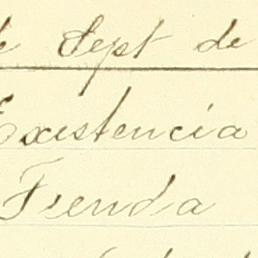 de Sept de
Existencia
Tienda